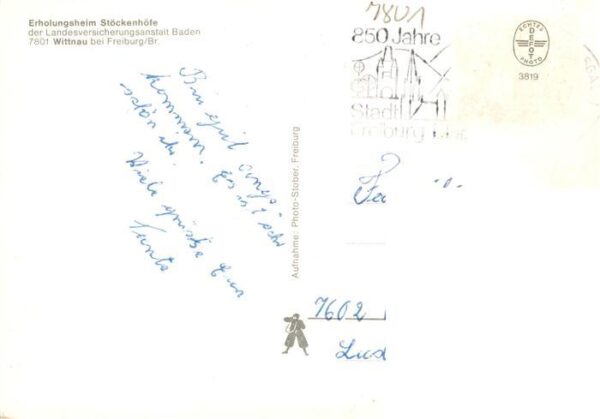 Erholungsheim Stöckenhöfe
der Landesversicherungsanstalt Baden
7801 Wittnau bei Freiburg/Br.
7801
850 Jahre
Stadt
Freiburg
ECHTES
DEPOT
PHOTO
3819
Bin gut ange-
kommen. Es ist sehr
schön hier.
Viele Grüße Eure
Tante
Aufnahme: Photo-Stober, Freiburg
Fa
7602